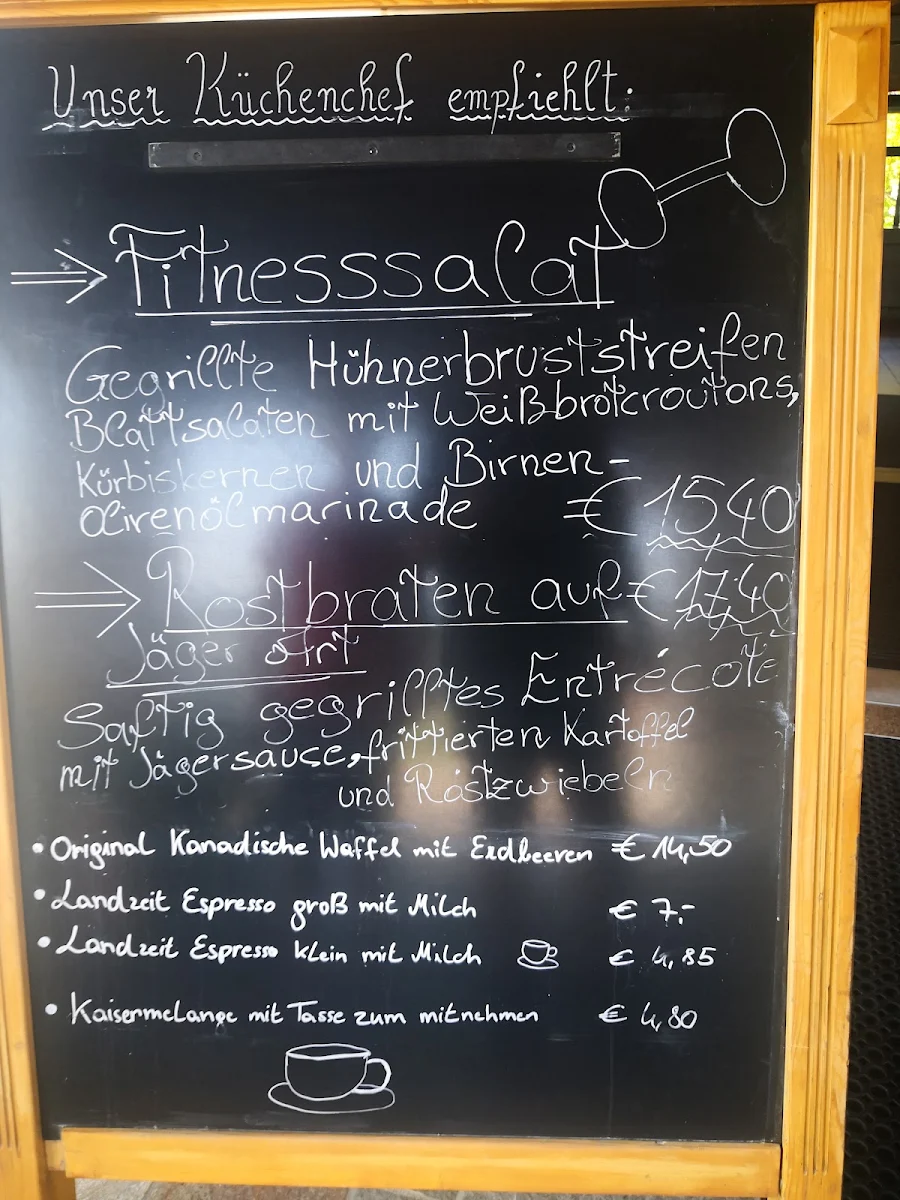 Unser Küchenchef empfiehlt:
⇒ Fitnesssalat
Gegrillte Hühnerbruststreifen
Blattsalaten mit Weißbrotcroutons,
Kürbiskernen und Birnen-
Olivenölmarinade €1540
⇒ Rostbraten auf €17,40
Jäger Art
Saftig gegrilltes Entrécote
mit Jägersauce, frittierten Kartoffel
und Röstzwiebeln
• Original Kanadische Waffel mit Erdbeeren € 14,50
• Landzeit Espresso groß mit Milch € 7.-
• Landzeit Espresso klein mit Milch € 4,85
• Kaisermelange mit Tasse zum mitnehmen € 4,80